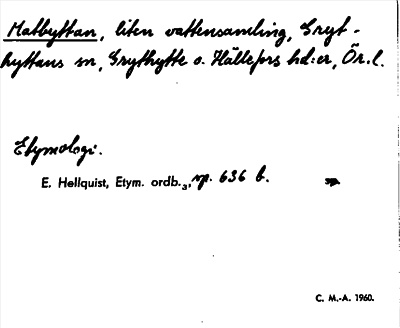 Matbyttan, liten vattensamling, Gryt-
hyttans sn, Grythytte o. Hällefors hd:er, Ör.l.
Etymologi.
E. Hellquist, Etym. ordb.3, sp. 636 b. sp.
C. M.-A. 1960.